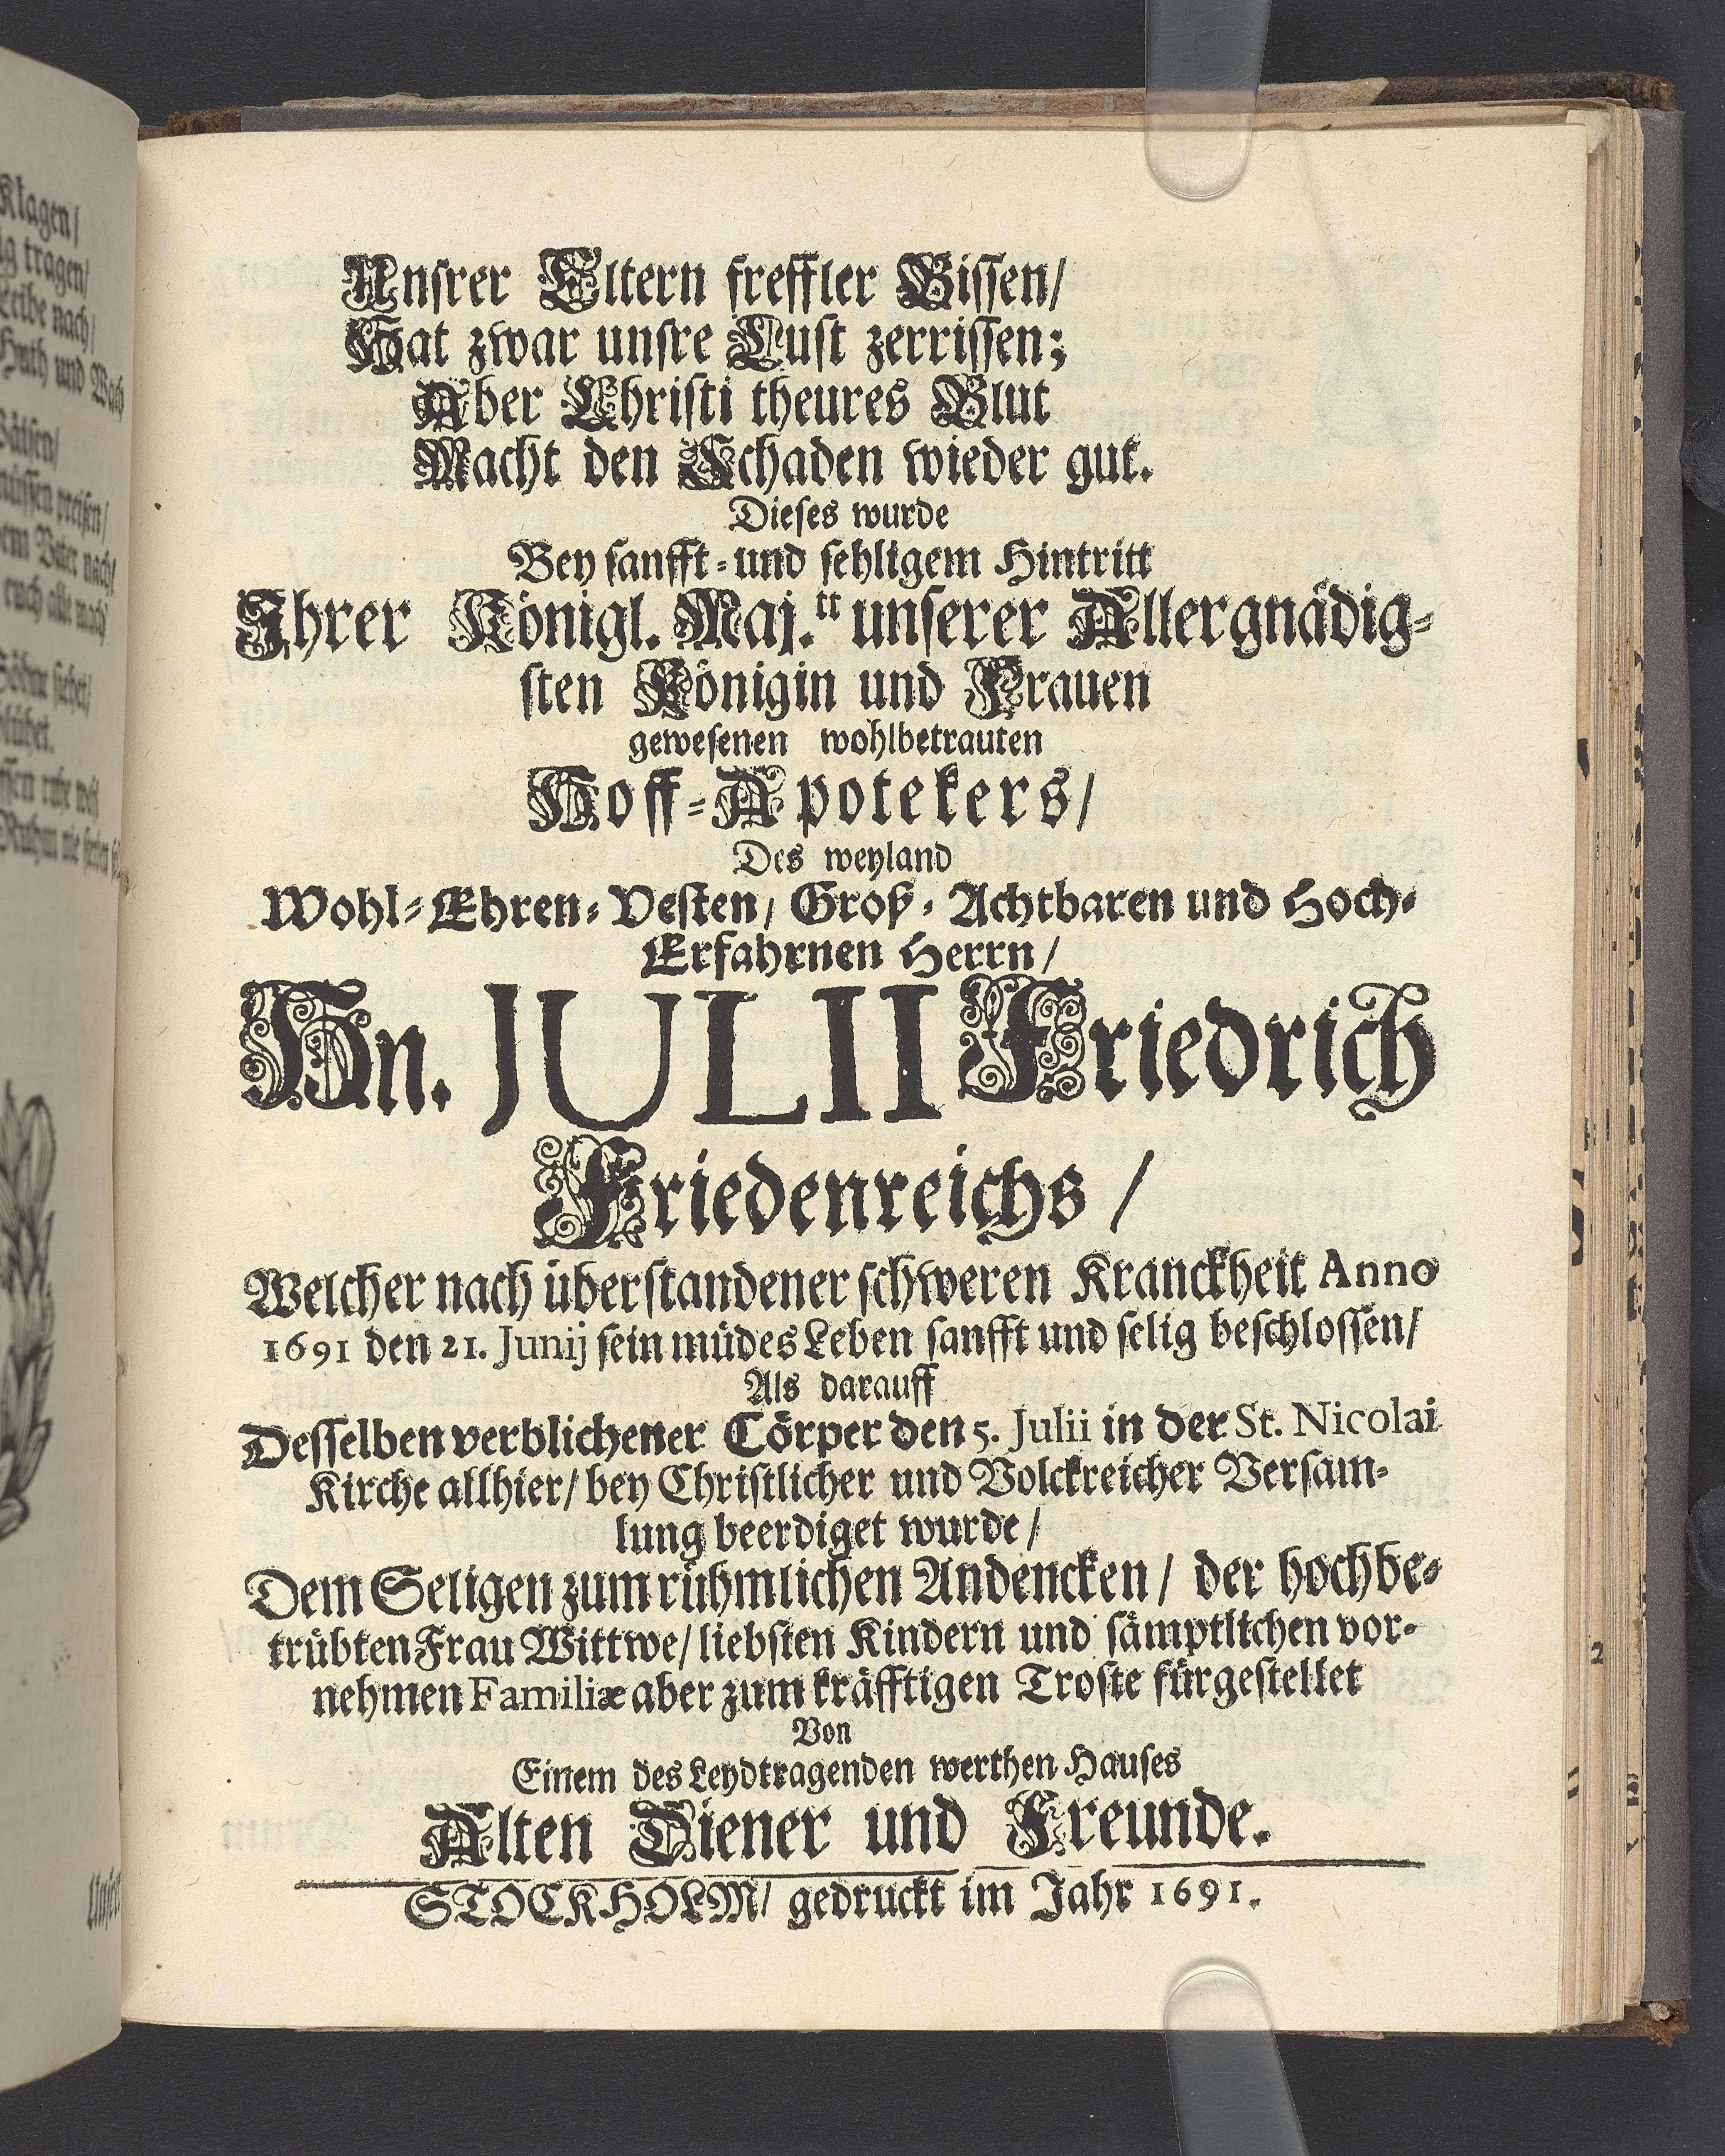 Klagen/
tragen/
Leibe nach/
Huth und Wach
preisen/
Vater nach/
euch alle nach
Söhne siehet/
blühet.
Unsrer Eltern freffler Bissen/
Hat zwar unsre Lust zerrissen;
Aber Christi theures Blut
Macht den Schaden wieder gut.
Dieses wurde
Bey sanfft-und sehligem Hintritt
Ihrer Königl. Maj.tt unserer Allergnädig-
sten Königin und Frauen
gewesenen wohlbetrauten
Hoff-Apotekers/
Des weyland
Wohl-Ehren-Vesten/ Groß-Achtbaren und Hoch-
Erfahrnen Herrn/
Hn. JULII Friedrich
Friedenreichs/
Welcher nach überstandener schweren Kranckheit Anno
1691 den 21. Junij sein müdes Leben sanfft und selig beschlossen/
Als darauff
Desselben verblichener Cörper den 5. Julii in der St. Nicolai
Kirche allhier/ bey Christlicher und Volckreicher Versam-
lung beerdiget wurde/
Dem Seligen zum rühmlichen Andencken/ der hochbe-
trübten Frau Wittwe/ liebsten Kindern und sämptlichen vor-
nehmen Familiæ aber zum kräfftigen Troste fürgestellet
Von
Einem des Leydtragenden werthen Hauses
Alten Diener und Freunde.
STOCKHOLM/ gedruckt im Jahr 1691.